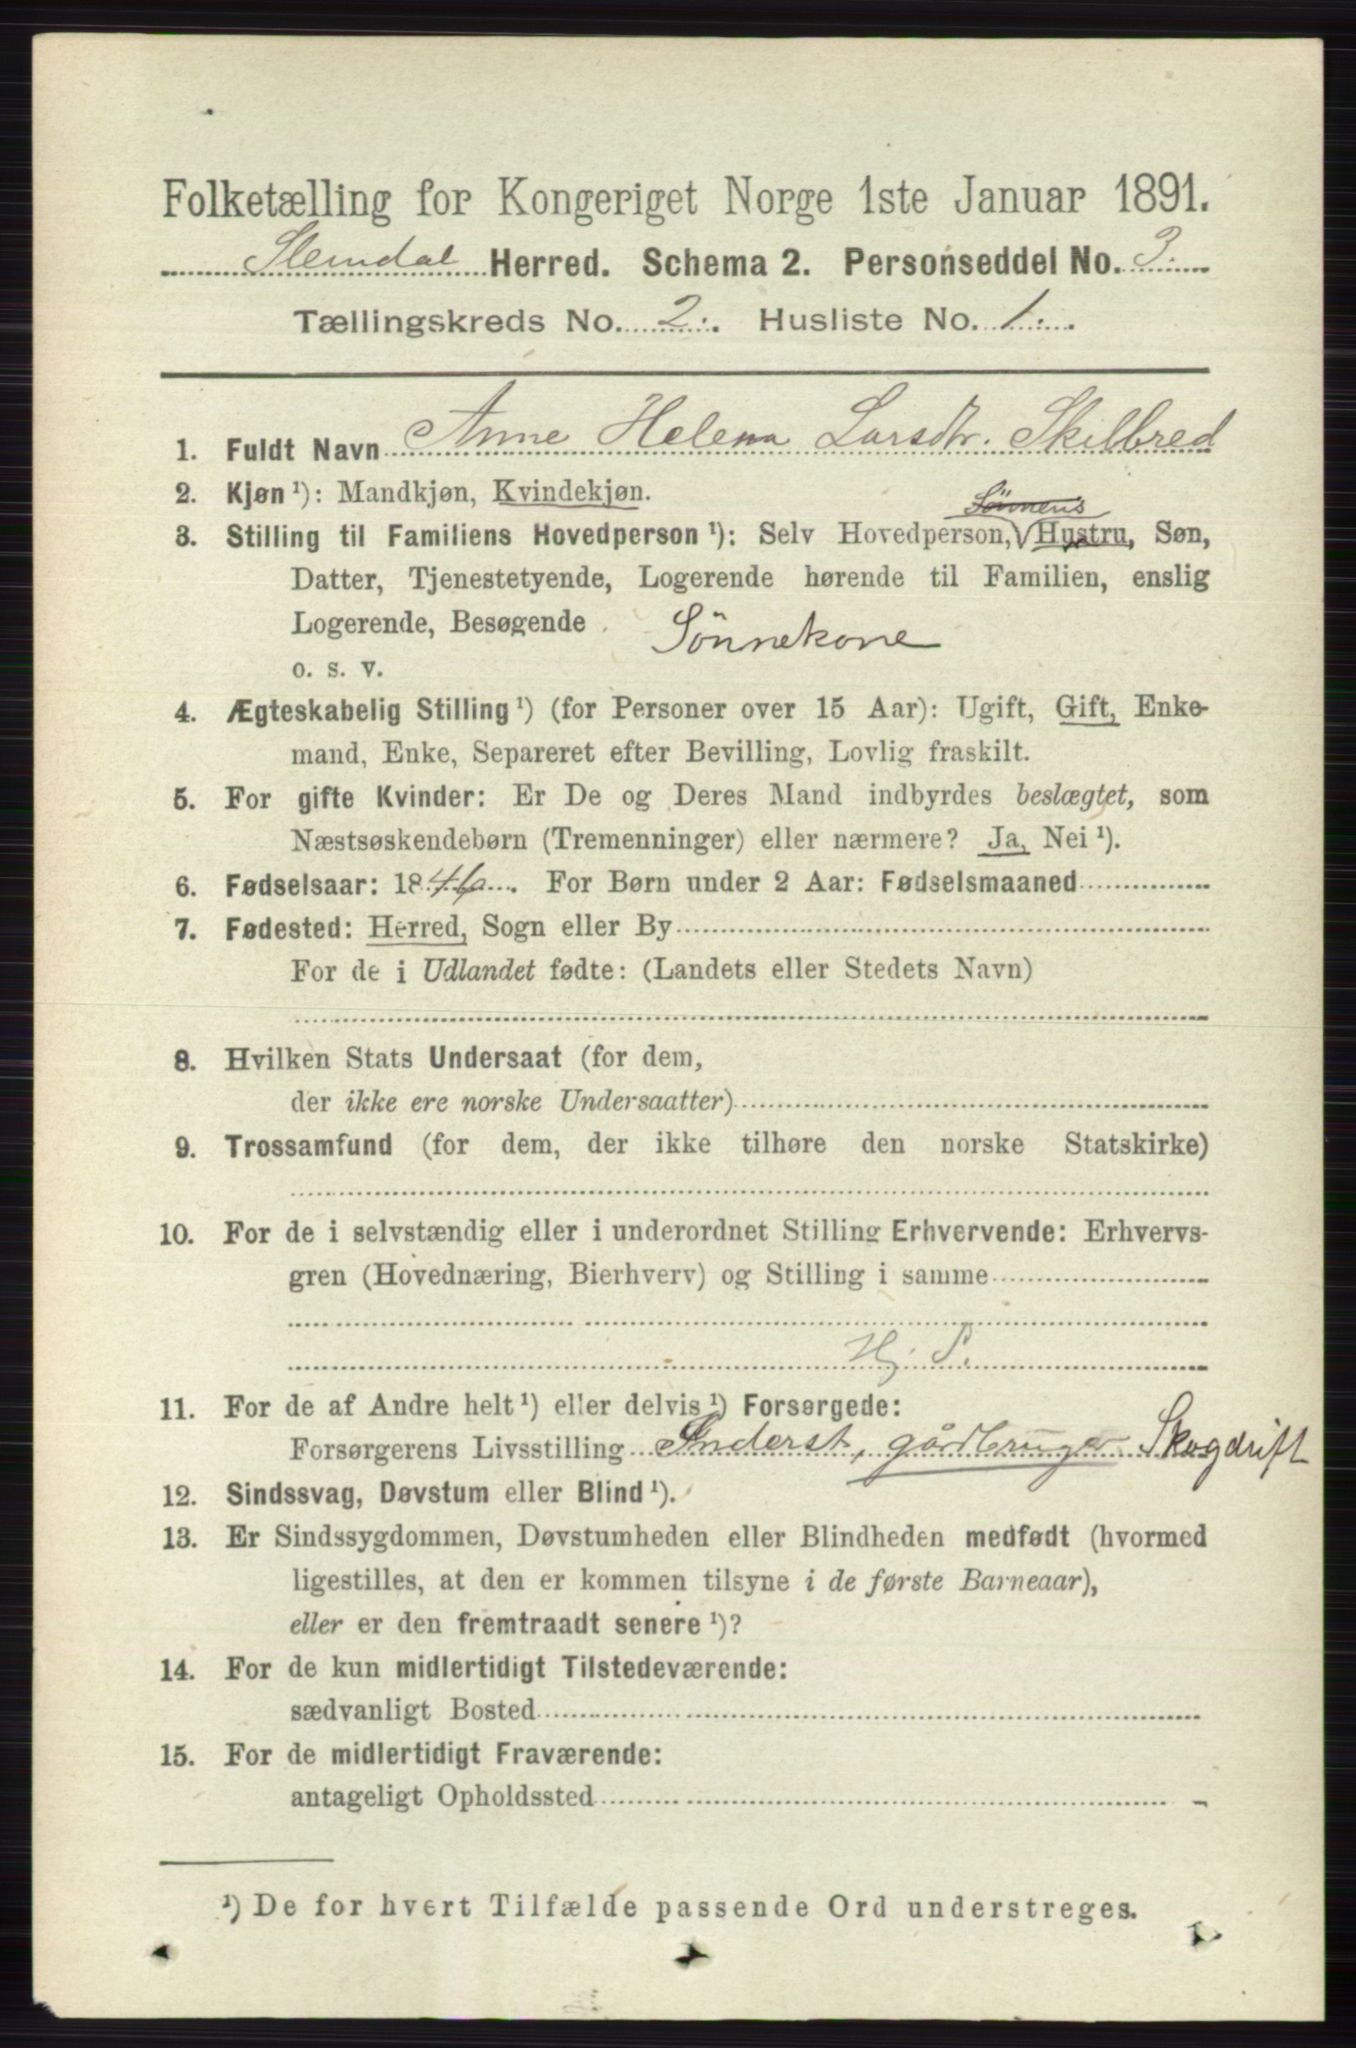 Folketælling for Kongeriget Norge 1ste Januar 1891.
Slemdal Herred. Schema 2. Personseddel No. 3.
Tællingskreds No. 2. Husliste No. 1.
1. Fuldt Navn Anne Helena Larsdtr. Skilbred
2. Kjøn¹): Mandkjøn, Kvindekjøn.
Sönnens
3. Stilling til Familiens Hovedperson¹): Selv Hovedperson, Hustru, Søn,
Datter, Tjenestetyende, Logerende hørende til Familien, enslig
Logerende, Besøgende Sönnekone
o. s. v.
4. Ægteskabelig Stilling¹) (for Personer over 15 Aar): Ugift, Gift, Enke-
mand, Enke, Separeret efter Bevilling, Lovlig fraskilt.
5. For gifte Kvinder: Er De og Deres Mand indbyrdes beslægtet, som
Næstsøskendebørn (Tremenninger) eller nærmere? Ja, Nei¹).
6. Fødselsaar: 1846. For Børn under 2 Aar: Fødselsmaaned
7. Fødested: Herred, Sogn eller By
For de i Udlandet fødte: (Landets eller Stedets Navn)
8. Hvilken Stats Undersaat (for dem,
der ikke ere norske Undersaatter)
9. Trossamfund (for dem, der ikke tilhøre den norske Statskirke)
10. For de i selvstændig eller i underordnet Stilling Erhvervende: Erhvervs-
gren (Hovednæring, Bierhverv) og Stilling i samme
H. S.
11. For de af Andre helt¹) eller delvis¹) Forsørgede:
Forsørgerens Livsstilling Inderst, gårdbruger Skogdrift
12. Sindssvag, Døvstum eller Blind¹).
13. Er Sindssygdommen, Døvstumheden eller Blindheden medfødt (hvormed
ligestilles, at den er kommen tilsyne i de første Barneaar),
eller er den fremtraadt senere¹)?
14. For de kun midlertidigt Tilstedeværende:
sædvanligt Bosted
15. For de midlertidigt Fraværende:
antageligt Opholdssted
¹) De for hvert Tilfælde passende Ord understreges.